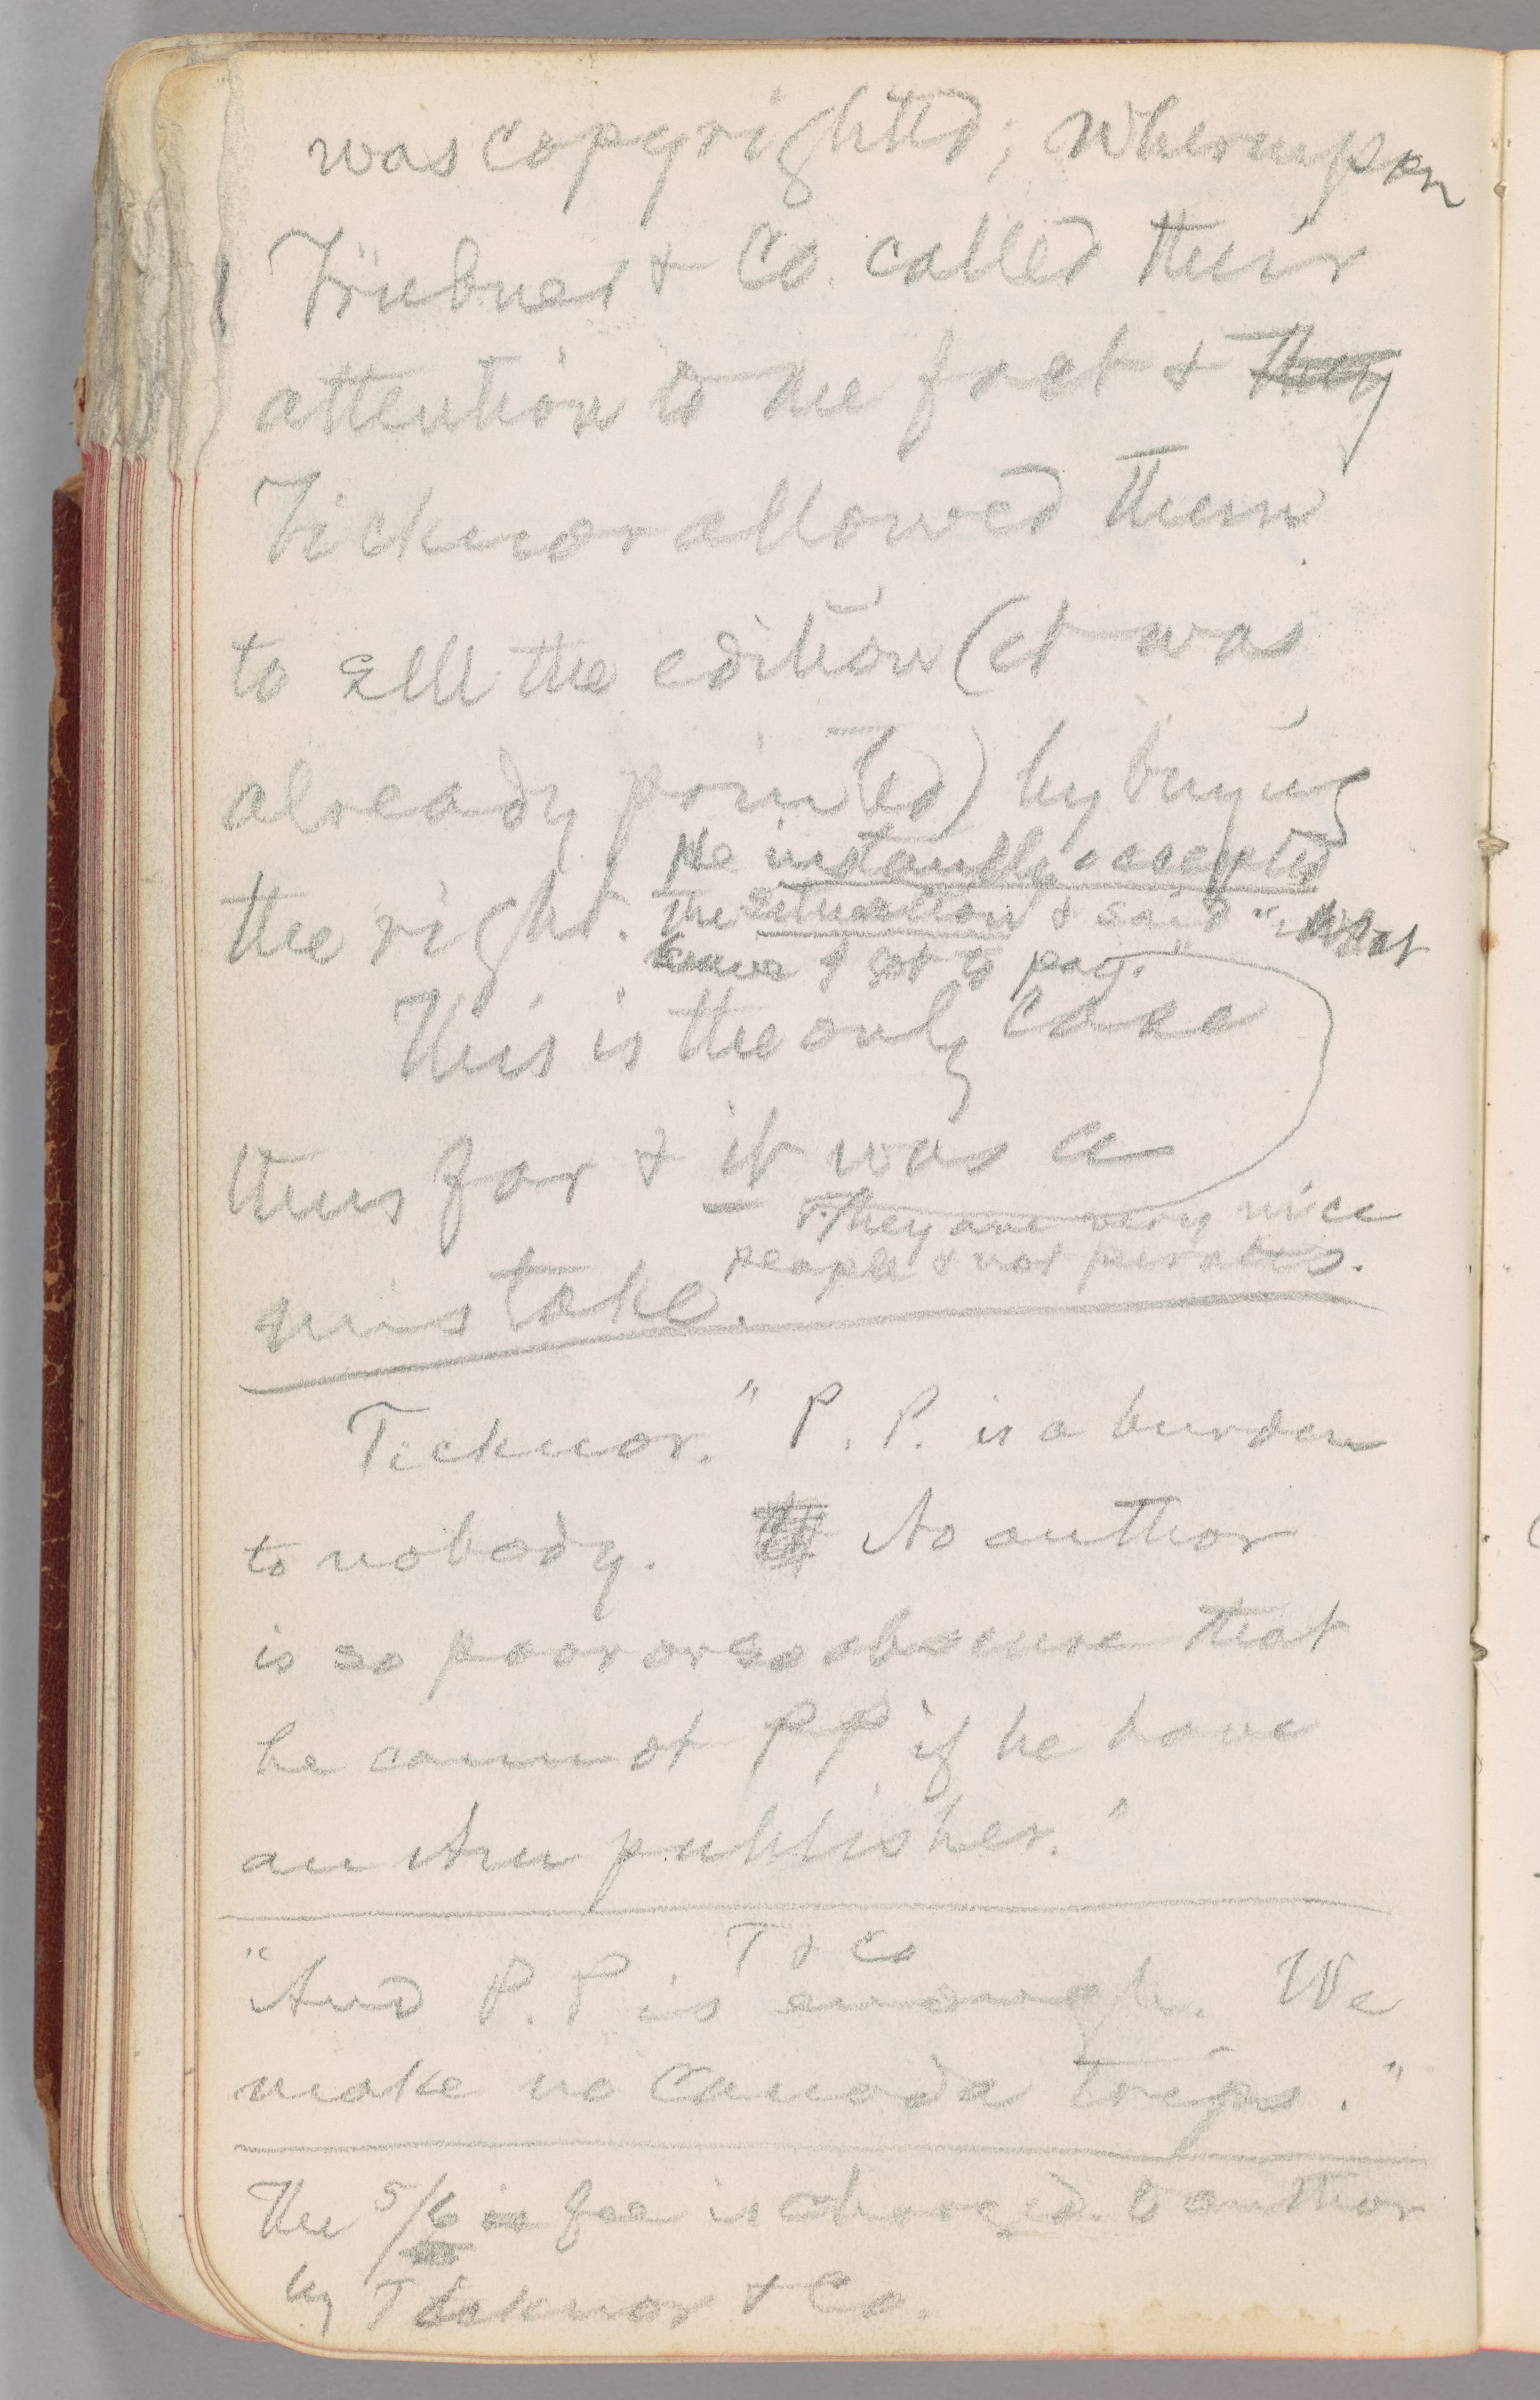 was copyrighted; whereupon
Trübner & Co. called their
attention to the fact & they
Ticknor allowed them
to sell the edition (it was
already printed) by buying
the right. He instantly accepted
the situation & said "What
have I got to pay."
This is the only case
thus far & it was a
mistake. They are very nice
people & not pirates.
Ticknor. "P. P. is a burden
to nobody. No author
is so poor or so obscure that
he cannot PP if he have
an Am publisher."
T & Co
"And P. P is enough. We
make no Canada trips."
The 5/6 fee is charged to author
by Ticknor & Co.